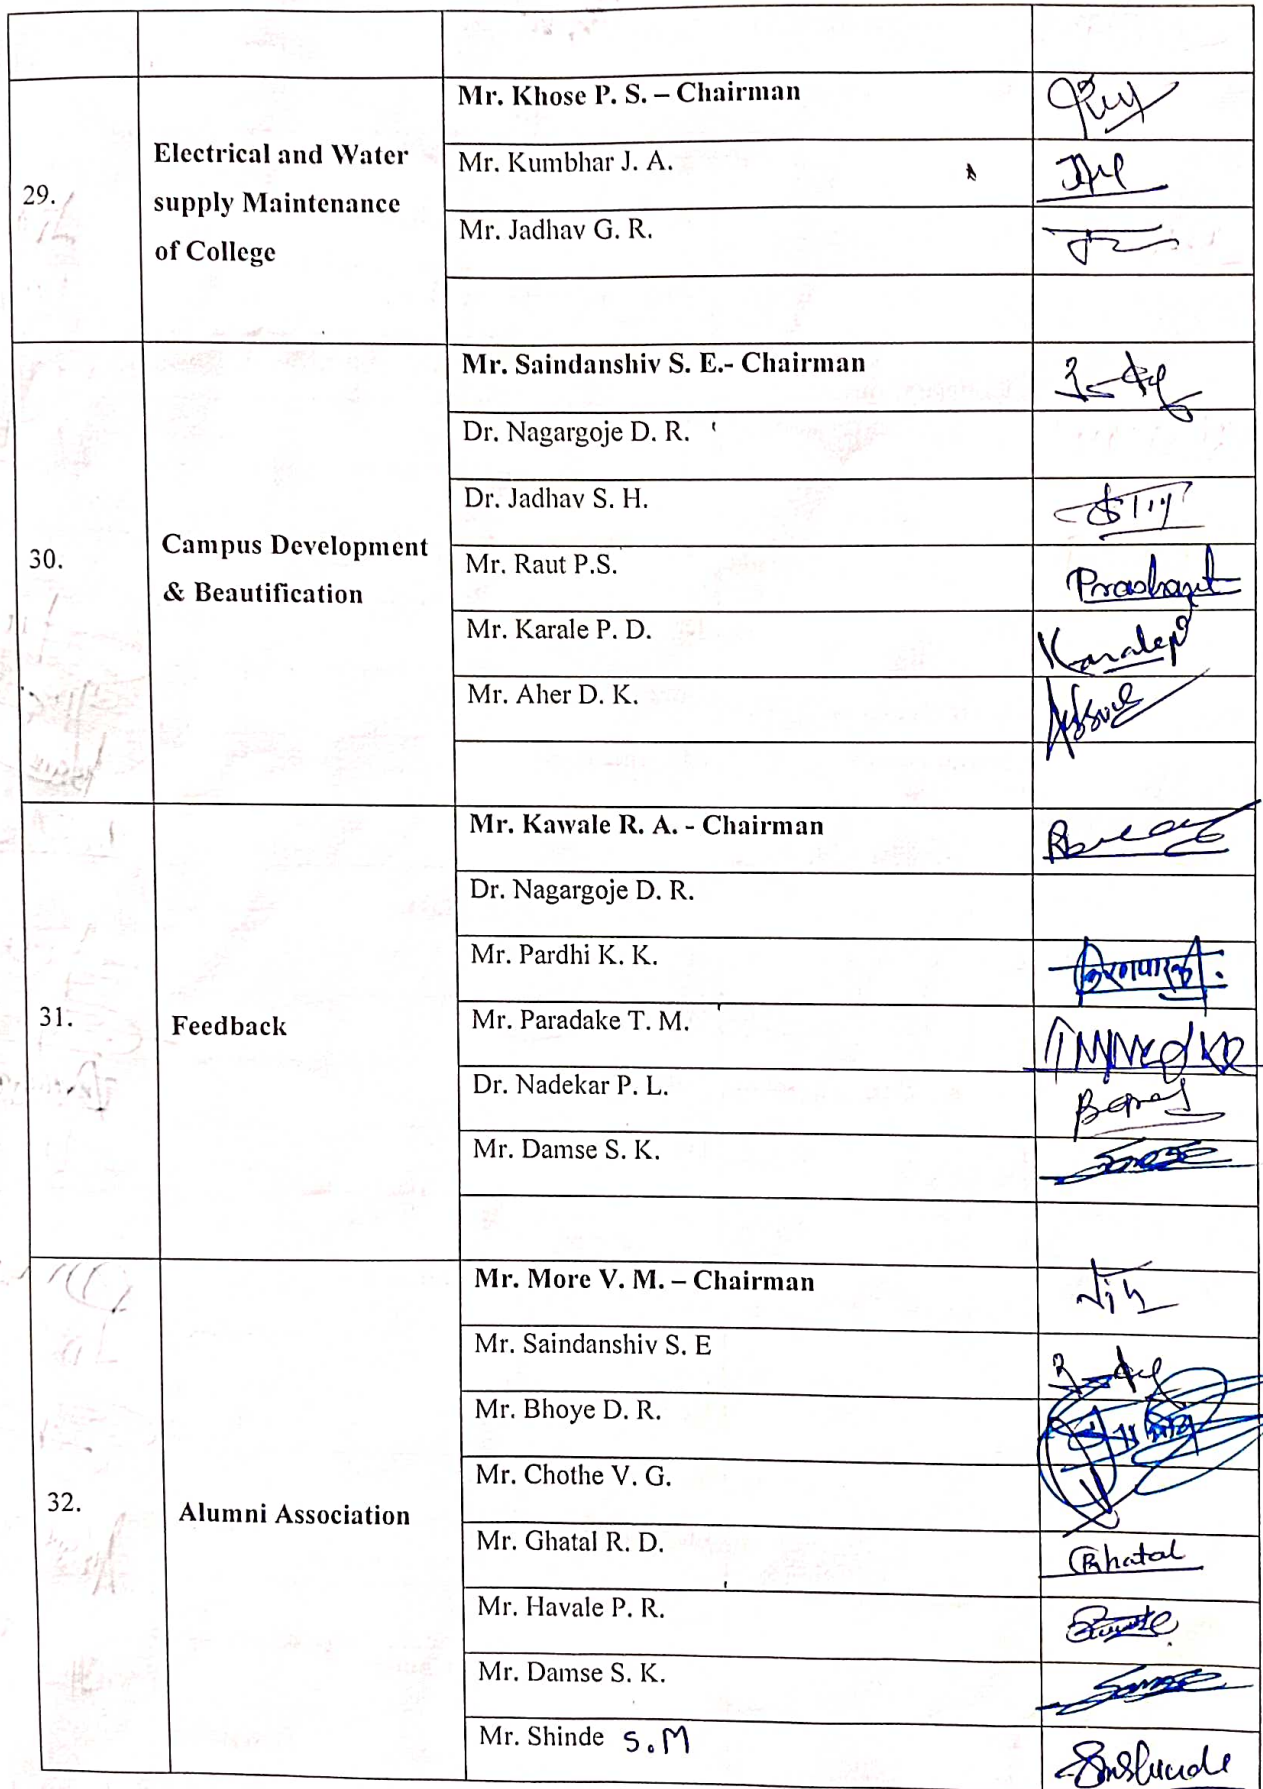 29.
Electrical and Water
supply Maintenance
of College
Mr. Khose P. S. – Chairman
Mr. Kumbhar J. A.
Mr. Jadhav G. R.
30.
Campus Development
& Beautification
Mr. Saindanshiv S. E.- Chairman
Dr. Nagargoje D. R.
Dr. Jadhav S. H.
Mr. Raut P.S.
Prashant
Mr. Karale P. D.
Mr. Aher D. K.
31.
Feedback
Mr. Kawale R. A. - Chairman
Dr. Nagargoje D. R.
Mr. Pardhi K. K.
Mr. Paradake T. M.
Dr. Nadekar P. L.
Mr. Damse S. K.
32.
Alumni Association
Mr. More V. M. – Chairman
Mr. Saindanshiv S. E
Mr. Bhoye D. R.
Mr. Chothe V. G.
Mr. Ghatal R. D.
Mr. Havale P. R.
Mr. Damse S. K.
Mr. Shinde S.M